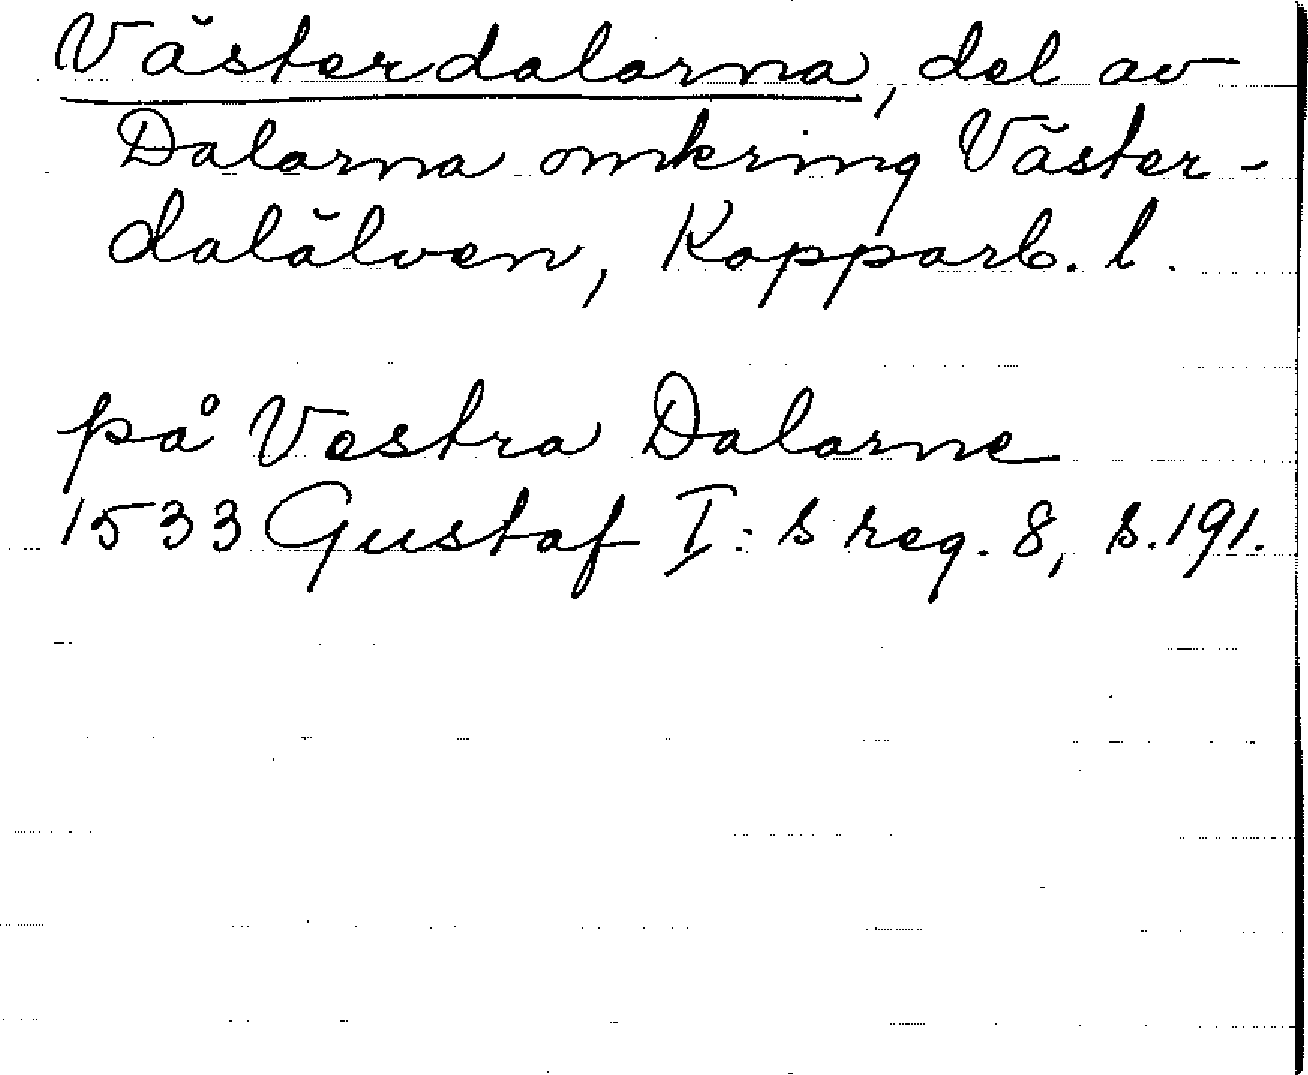 Västerdalarna, del av
Dalarna omkring Väster-
dalälven, Kopparb. l.
på Vestra Dalarne
1533 Gustaf I:s reg. 8, s. 191.